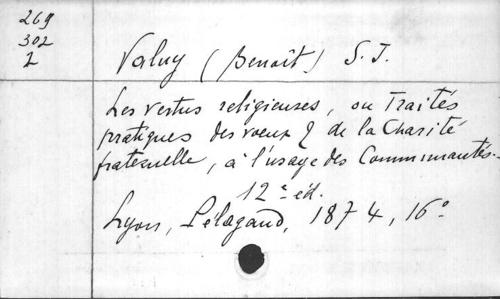 269
302
2
Valuy (Benoît) S. J.
Les vertus religieuses, ou Traités
pratiques des voeux & de la Charité
fraternelle, à l'usage des Communautés.
12e éd.
Lyon, Pélagaud, 1874, 16°